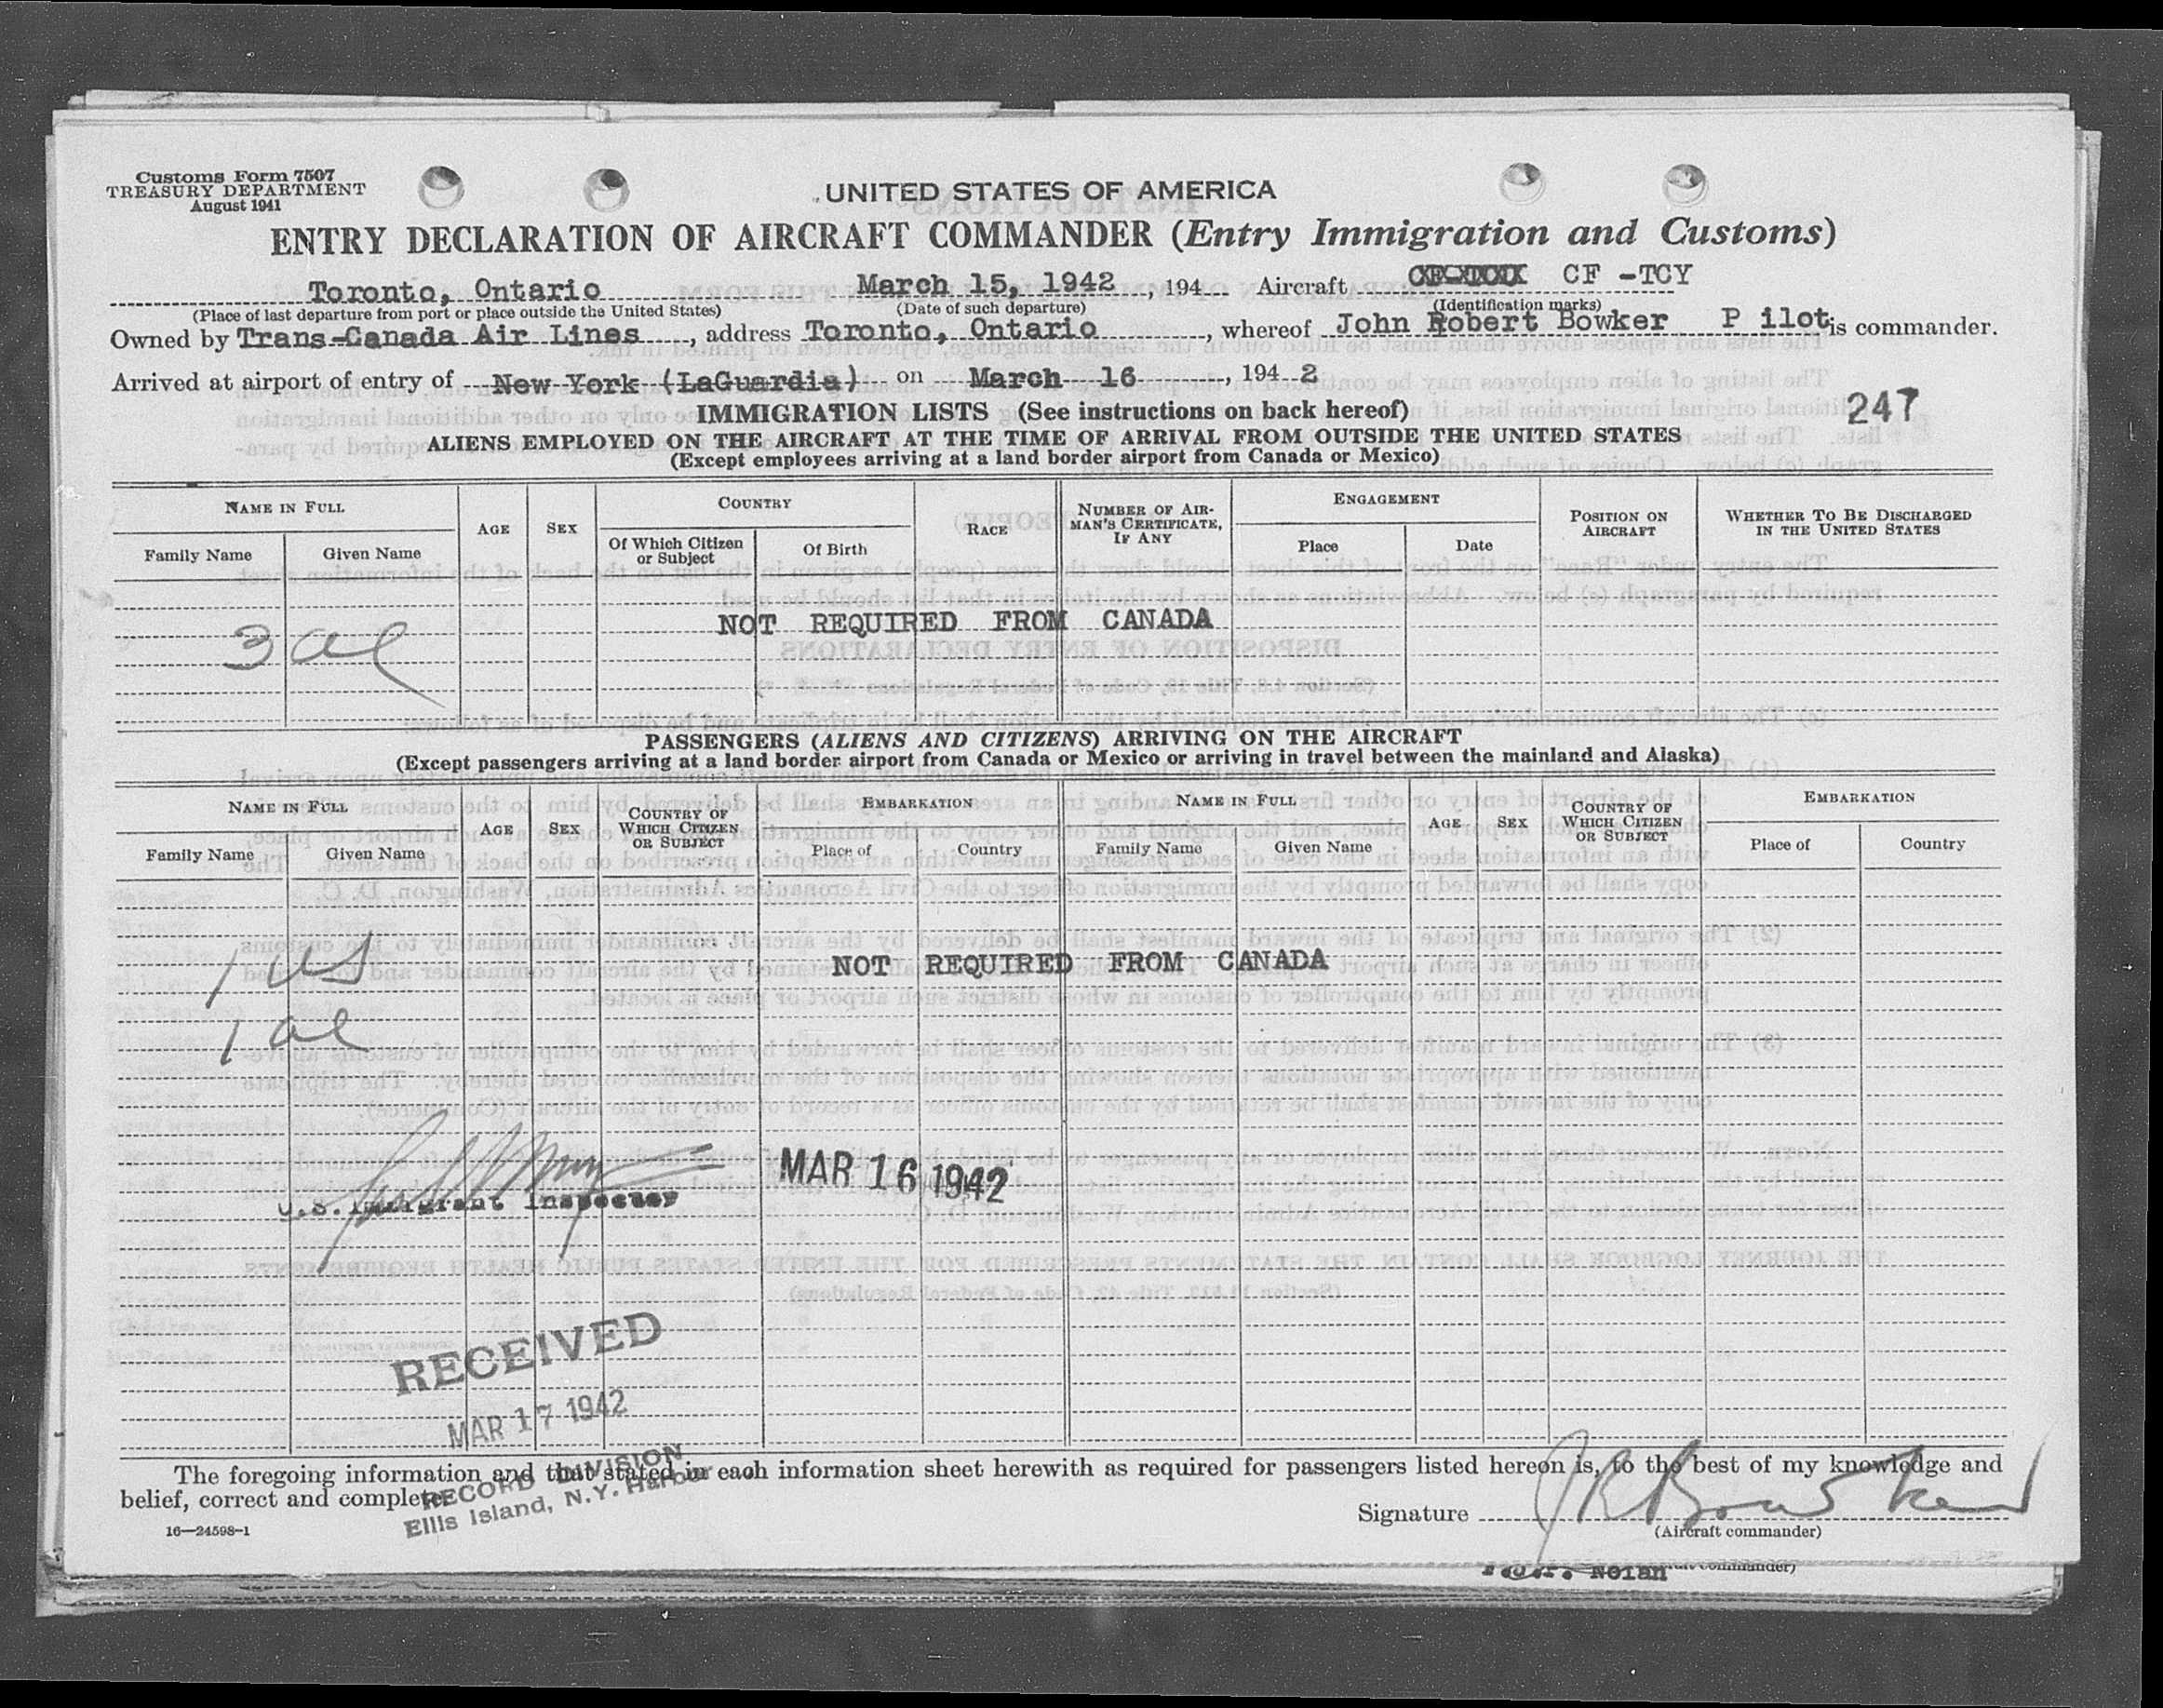 Customs Form 7507
TREASURY DEPARTMENT
August 1941
UNITED STATES OF AMERICA
ENTRY DECLARATION OF AIRCRAFT COMMANDER (Entry Immigration and Customs)
Toronto, Ontario March 15, 1942, 194 Aircraft CF -TCY
(Place of last departure from port or place outside the United States) (Date of such departure) (Identification marks)
Owned by Trans-Canada Air Lines, address Toronto, Ontario, whereof John Robert Bowker P ilot is commander.
Arrived at airport of entry of New York (LaGuardia) on March 16, 194 2
247
IMMIGRATION LISTS (See instructions on back hereof)
ALIENS EMPLOYED ON THE AIRCRAFT AT THE TIME OF ARRIVAL FROM OUTSIDE THE UNITED STATES
(Except employees arriving at a land border airport from Canada or Mexico)
NAME IN FULL
Family Name Given Name
AGE
SEX
COUNTRY
Of Which Citizen or Subject
Of Birth
RACE
NUMBER OF AIRMAN'S CERTIFICATE, IF ANY
ENGAGEMENT
Place Date
POSITION ON AIRCRAFT
WHETHER TO BE DISCHARGED IN THE UNITED STATES
NOT REQUIRED FROM CANADA
3 al
PASSENGERS (ALIENS AND CITIZENS) ARRIVING ON THE AIRCRAFT
(Except passengers arriving at a land border airport from Canada or Mexico or arriving in travel between the mainland and Alaska)
NAME IN FULL
Family Name Given Name
AGE
SEX
COUNTRY OF WHICH CITIZEN OR SUBJECT
EMBARKATION
Place of Country
NAME IN FULL
Family Name Given Name
AGE
SEX
COUNTRY OF WHICH CITIZEN OR SUBJECT
EMBARKATION
Place of Country
1 US
NOT REQUIRED FROM CANADA
1 al
MAR 16 1942
U.S. Immigrant Inspector
RECEIVED
MAR 17 1942
RECORD DIVISION
Ellis Island, N.Y. Harbor
The foregoing information and that stated in each information sheet herewith as required for passengers listed hereon is, to the best of my knowledge and
belief, correct and complete.
16—24598-1
Signature J R Bowker
(Aircraft commander)
Nolan commander)